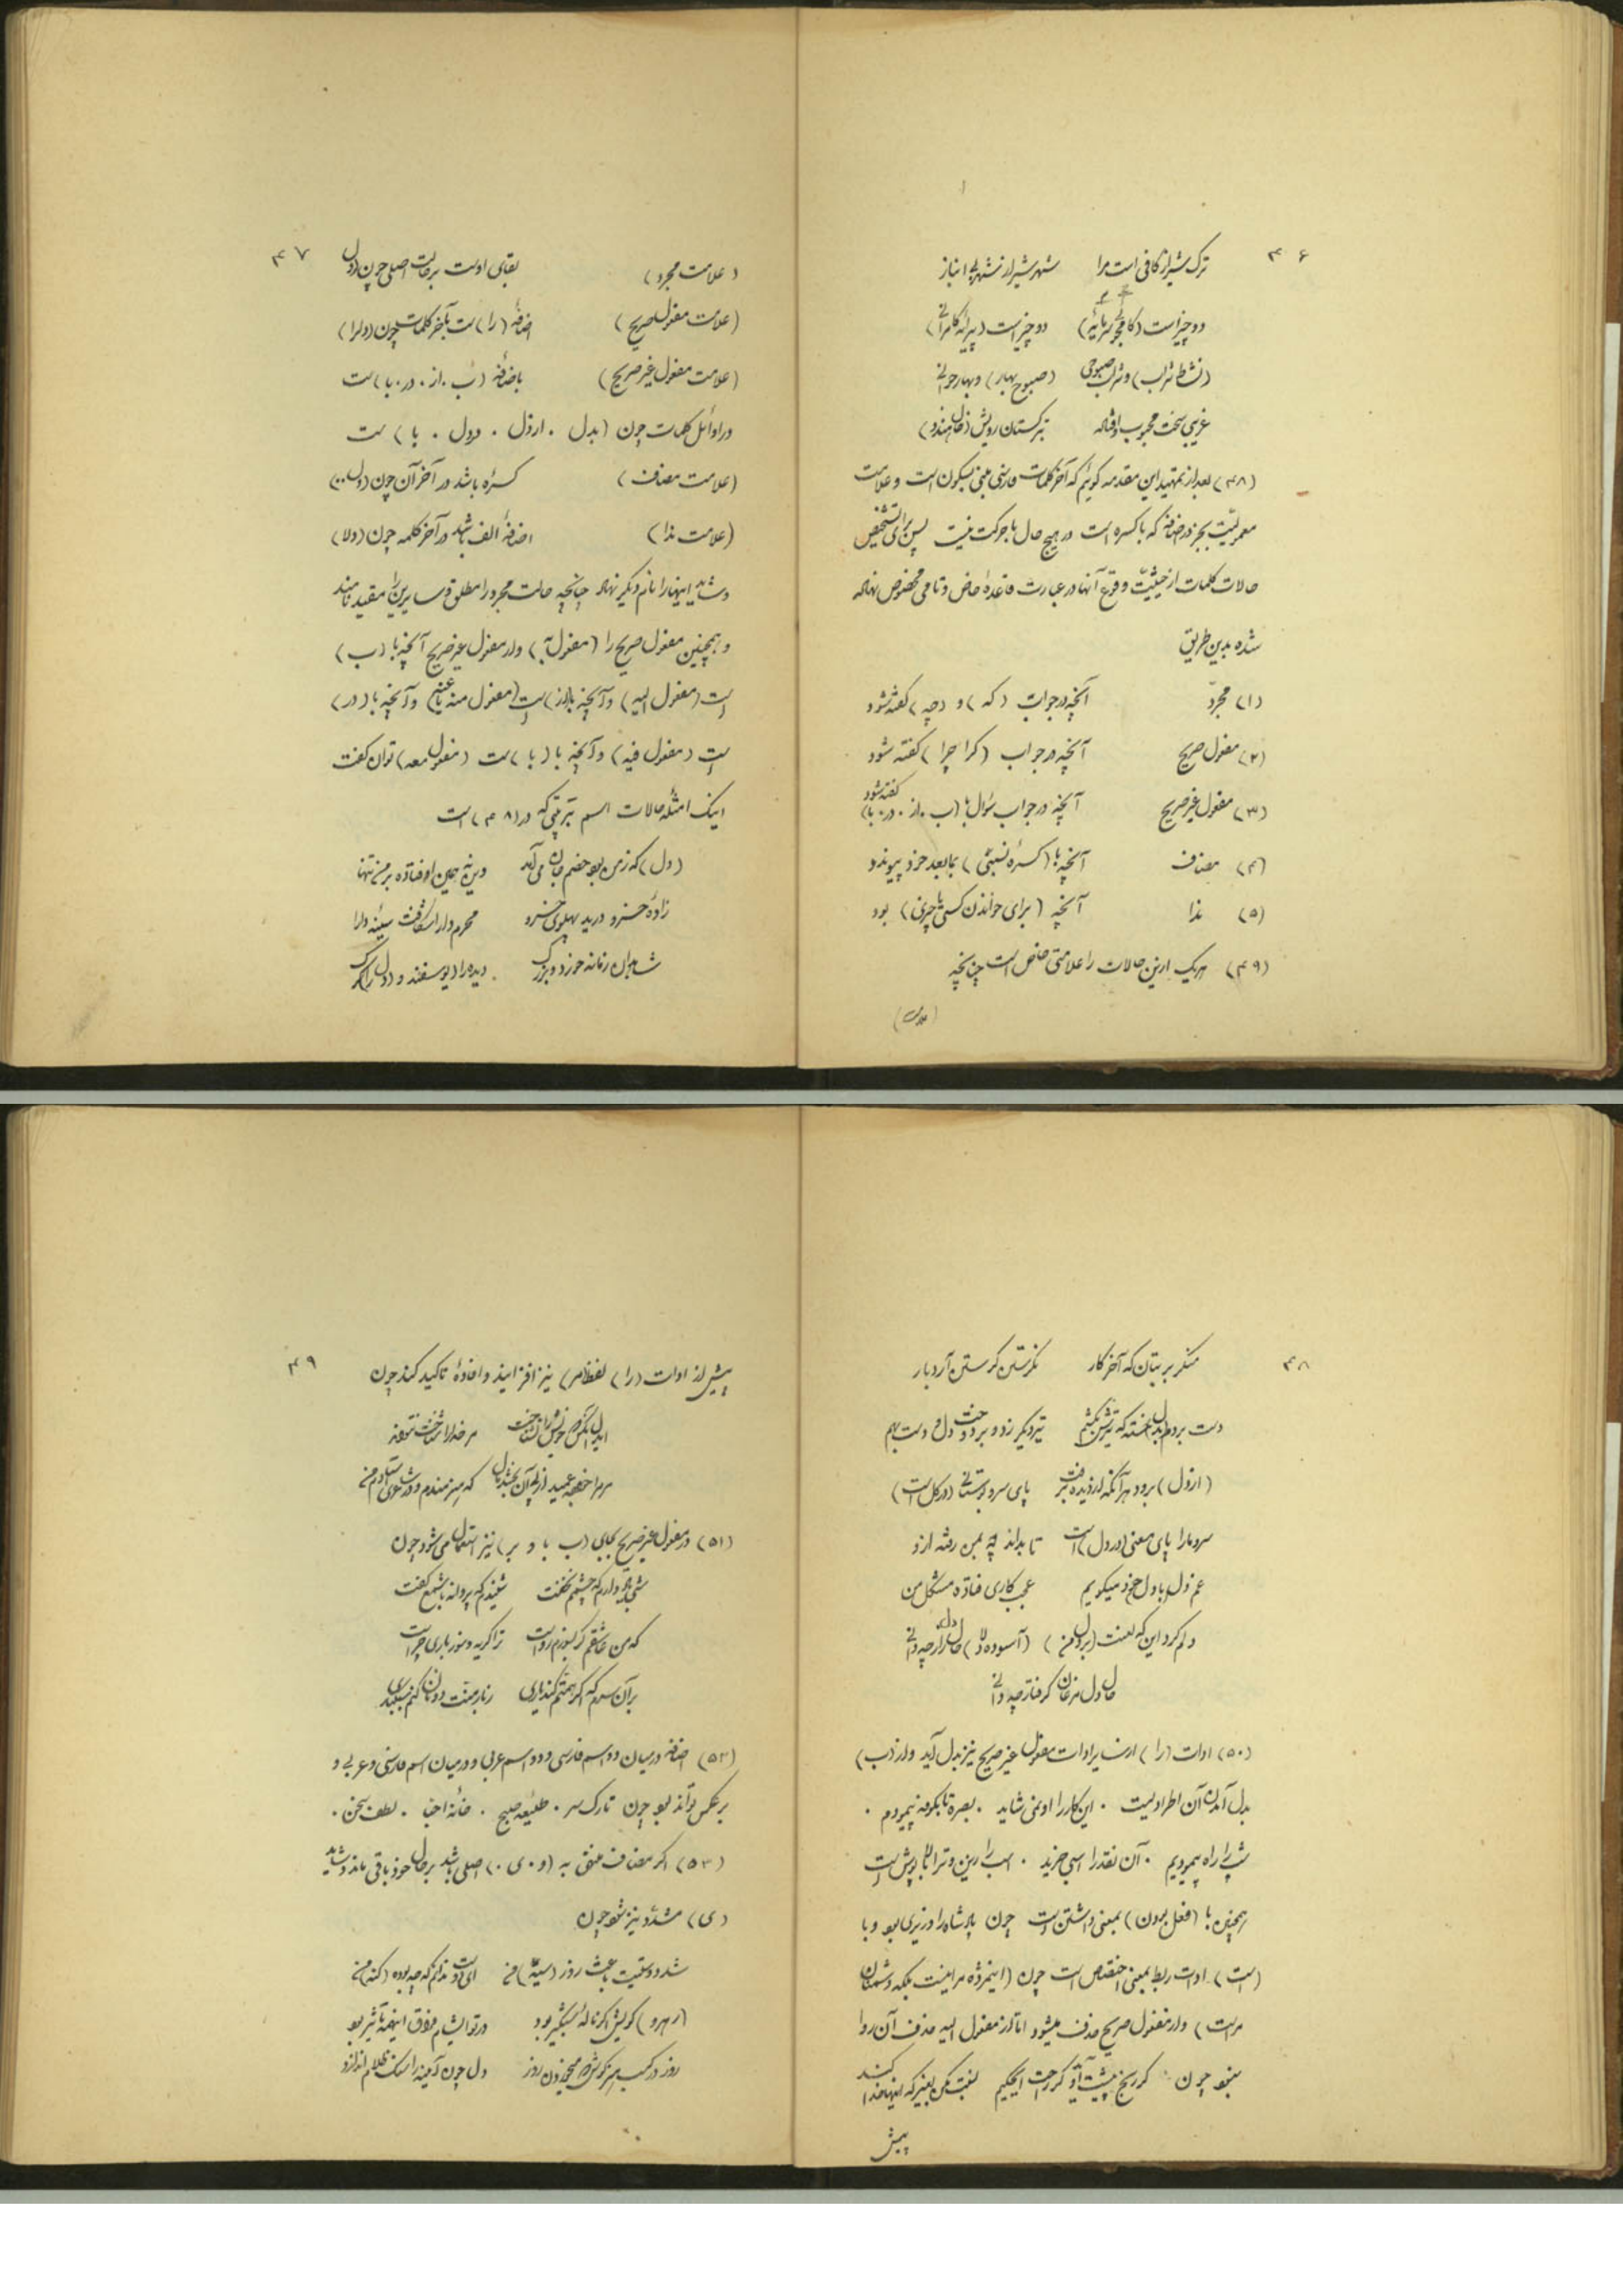 ۴۶
ترک شیراز کافی است مرا شهر شیراز شهر بی انباز
دو چیز است (کافی سرمایهٔ) دو چیز است (پیرایهٔ کامرانی)
(نشاط شراب) و شراب صبوحی (صبوح بهار) و بهار جوانی
غریبی سخت محبوب اوفتاده بترکستان رویش (خال هندو)
(۴۸) بعد از تمهید این مقدمه گوئیم که آخر کلمات فارسی مبنی بسکون است و علامت
معمولیت بجز در اضافه که با کسره است در هیچ حال با حرکت نیست پس برای تشخیص
حالات کلمات از حیثیّت وقوع آنها در عبارت قاعدهٔ خاص و نامی مخصوص نهاده
شده بدین طریق
(۱) مجرّد آنچه در جواب (که) و (چه) گفته شود
(۲) مفعول صریح آنچه در جواب (کرا چرا) گفته شود
(۳) مفعول غیر صریح آنچه در جواب سؤال با (ب . از . در . با) گفته شود
(۴) مضاف آنچه با (کسرهٔ نسبتی) بمابعد خود پیوندد
(۵) ندا آنچه (برای خواندن کسی یا چیزی) بود
(۴۹) هر یک ازین حالات را علامتی خاص است چنانچه
(علامت)
۴۷
(علامت مجرد) بقای اوست بر حالت اصلی چون (دل)
(علامت مفعول صریح) اضافهٔ (را) ست بآخر کلمات چون (دلرا)
(علامت مفعول غیر صریح) باضافهٔ (ب . از . در . با) ست
در اوائل کلمات چون (بدل . از دل . در دل . با) ست
(علامت مضاف) کسره باشد در آخر آن چون (دل ..)
(علامت ندا) اضافهٔ الف باشد در آخر کلمه چون (دلا)
و شاید اینهارا نام دیگر نهاد چنانچه حالت مجرد را مطلق و سایرین را مقید نامند
و همچنین مفعول صریح را (مفعول به) و از مفعول غیر صریح آنچه با (ب)
است (مفعول الیه) و آنچه با (از) است (مفعول منه یا عنه) و آنچه با (در)
است (مفعول فیه) و آنچه با (با) ست (مفعول معه) توان گفت
اینک امثلهٔ حالات اسم بترتیبی که در (۴۸) است
(دل) که زمن بود خصم جان می آید وین نه همین اوفتاده بر من تنها
زادهٔ خسرو درید پهلوی خسرو محرم دارا شکافت سینهٔ دارا
شاهدان زمانه خورد و بزرگ دیده را دیوسفند و (دل را) گرگ
۴۸
منگر بر بتان که آخر کار نگرستن گرستن آرد بار
دست بردم بدل خسته که تیرش بکشم تیر دیگر زد و بر دوخت دل و دست بهم
(از دل) برود هر آنکه از دیده برفت پای سرو بوستانی (در گل است)
سرو ما را پای معنی (در دل) است تا بداند چه بمن رفته ازو
غم دل (با دل) خود میگویم عجب کاری فتاده مشکل من
دلم کرد این که لعنت (بر دل من) (آسوده دلا) حال دل زار چه دانی
حال دل مرغان گرفتار چه دانی
(۵۰) ادات (را) از سایر ادات مفعول غیر صریح نیز بدل آید و از (ب)
بدل آمدن آن اطراد نیست . این کار را او نمی شاید . بصره تا بکوفه پیمودم .
شب را راه پیمودیم . آن نقد را اسبی خرید . اسب را زین و ترا بالاپوش است
همچنین با (فعل بودن) بمعنی داشتن است چون پادشاه را وزیری بود و با
(است) ادات ربط بمعنی اختصاص است چون (اینمژده مرا نیست بلکه دشمنان
مراست) و از مفعول صریح حذف میشود اما از مفعول الیه حذف آن روا
نبود چون
پیش
۴۹
پیش از ادات (را) لفظ (مر) نیز افزایند و افادهٔ تاکید کند چون
ایدل آنکس که خویش را نشناخت مر خدا را شناخت نتواند
(۵۱) در مفعول غیر صریح بجای (ب با و بر) نیز استعمال می شود چون
شبی یاد دارم که چشمم نخفت شنیدم که پروانه با شمع گفت
که من عاشقم گر بسوزم رواست ترا گریه و سوز باری چراست
بر آن سرم که اگر همتم کند یاری ز بار منت دونان کنم سبکباری
(۵۲) اضافه در میان دو اسم فارسی و دو اسم عربی و در میان اسم فارسی و عربی و
بر عکس تواند بود چون تارک سر . طلیعهٔ صبح . خانهٔ احبا . لطف سخن .
(۵۳) اگر مضاف منتهی به (و . ی .) اصلی باشد بر حال خود باقی ماند و شاید
(ی) مشدّد نیز شود چون
شد دوستیت باعث روز (سیه) من ای دوست ندانم که چه بوده (گنه) من
(رهرو) کویش اگر نالهٔ شبگیر بود
دل چون آینه را